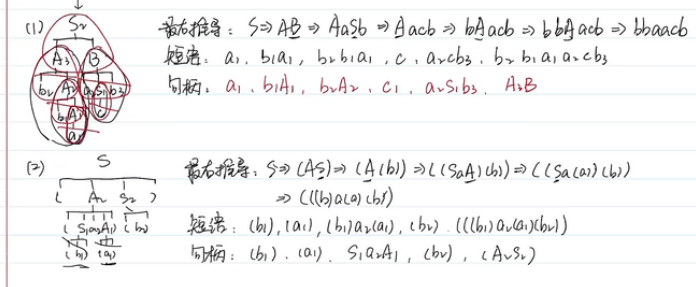 (1)
S₂
A₃ B
b₂ A₂ a₂ S₁ b₃
b₁ A₁ c
a₁
最右推导: S⇒AB⇒AaSb⇒Aacb⇒bAacb⇒bbAacb⇒bbaacb
短语: a₁, b₁a₁, b₂b₁a₁, c, a₂cb₃, b₂b₁a₁a₂cb₃
句柄: a₁, b₁A₁, b₂A₂, c₁, a₂S₁b₃, A₃B
(2)
S
( A₂ S₂ )
( S₁ a₂ A₁ ) ( b₂ )
( b₁ ) ( a₁ )
最右推导: S⇒(AS)⇒(A(b))⇒((SaA)(b))⇒((Sa(a))(b))
⇒(((b)a(a)(b))
短语: (b₁), (a₁), (b₁)a₂(a₁), (b₂), (((b₁)a₂(a₁)(b₂))
句柄: (b₁), (a₁), S₁a₂A₁, (b₂), (A₂S₂)